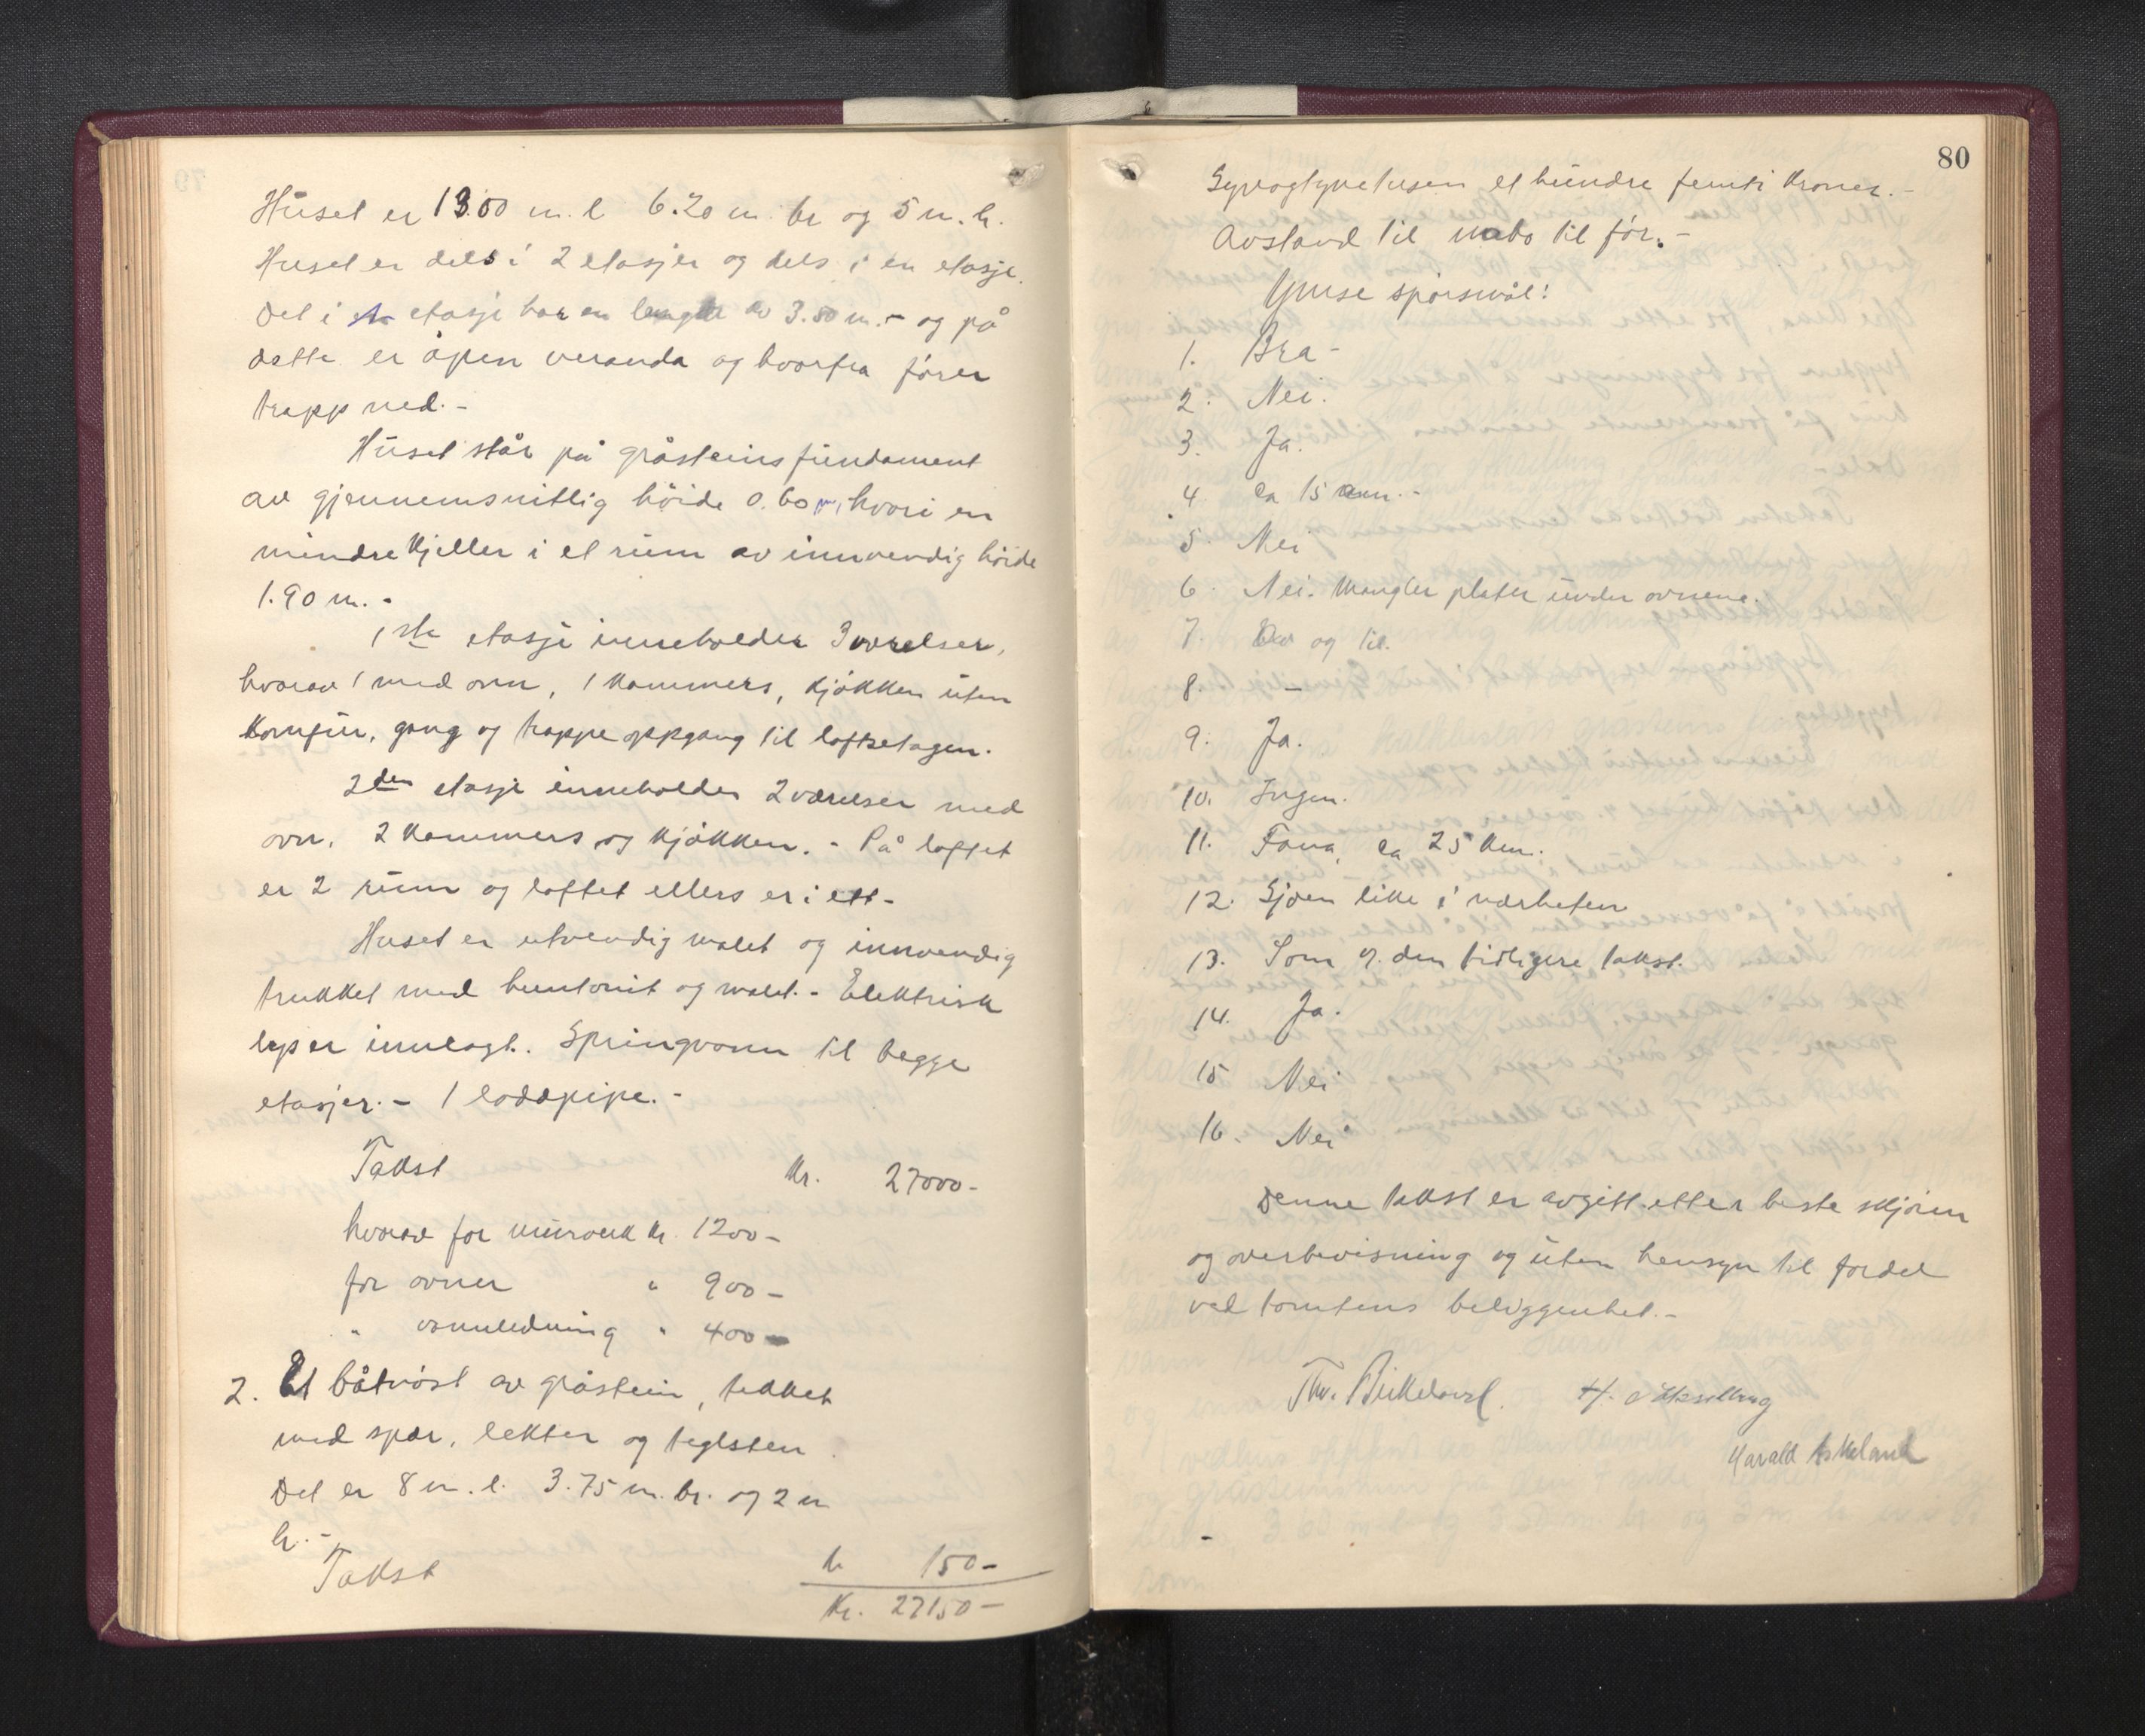 Huset er 13.00 m. l 6.20 m. br og 5 m. h.
Huset er dels i 2 etasjer og dels i en etasje.
Det i 1ste etasje har en lengde av 3.50 m. - og på
dette er åpen veranda og hvorfra fører
trapp ned. -
Huset står på gråsteinsfundament
av gjennemsnitlig höide 0.60 m, hvori en
mindre kjeller i et rum av innvendig höide
1.90 m. -
1ste etasje inneholder 3 værelser,
hvorav 1 med ovn, 1 kammers, kjøkken uten
komfur, gang og trappeoppgang til loftsetagen.
2den etasje inneholder 2 værelser med
ovn, 2 kammers og kjøkken. - På loftet
er 2 rum og loftet ellers er i ett -
Huset er utvendig malt og innvendig
trukket med huntonit og malt. - Elektrisk
lys er innlagt. Springvann til begge
etasjer. - 1 loddpipe. -
Takst Kr. 27000 -
hvorav for murverk kr. 1200 -
for ovner " 900 -
" vannledning " 400 -
2. Et båtnöst av gråstein, tekket
med spær, lekter og teglsten
Det er 8 m. l. 3.75 m. br. og 2 m
h. -
Takst kr 150 -
Kr. 27150 -
80
Syvogtyvetusen et hundre femti kroner. -
Avstand til nabo til før. -
Ymse spörsmål:
1. Bra -
2. Nei.
3. Ja.
4. ca 15 -
5. Nei
6. Nei. Mangler plater under ovnene.
7. Av og til.
8. -
9. Ja.
10. Ingen.
11. Fana, ca 25 km.
12. Sjøen like i nærheten
13. Som v. den tidligere takst.
14. Ja.
15 Nei
16. Nei
Denne takst er avgitt etter beste skjönn
og overbevisning og uten hensyn til fordel
ved tomtens beliggenhet. -
Thv. Birkeland. H. Hasselberg
Harald Askeland